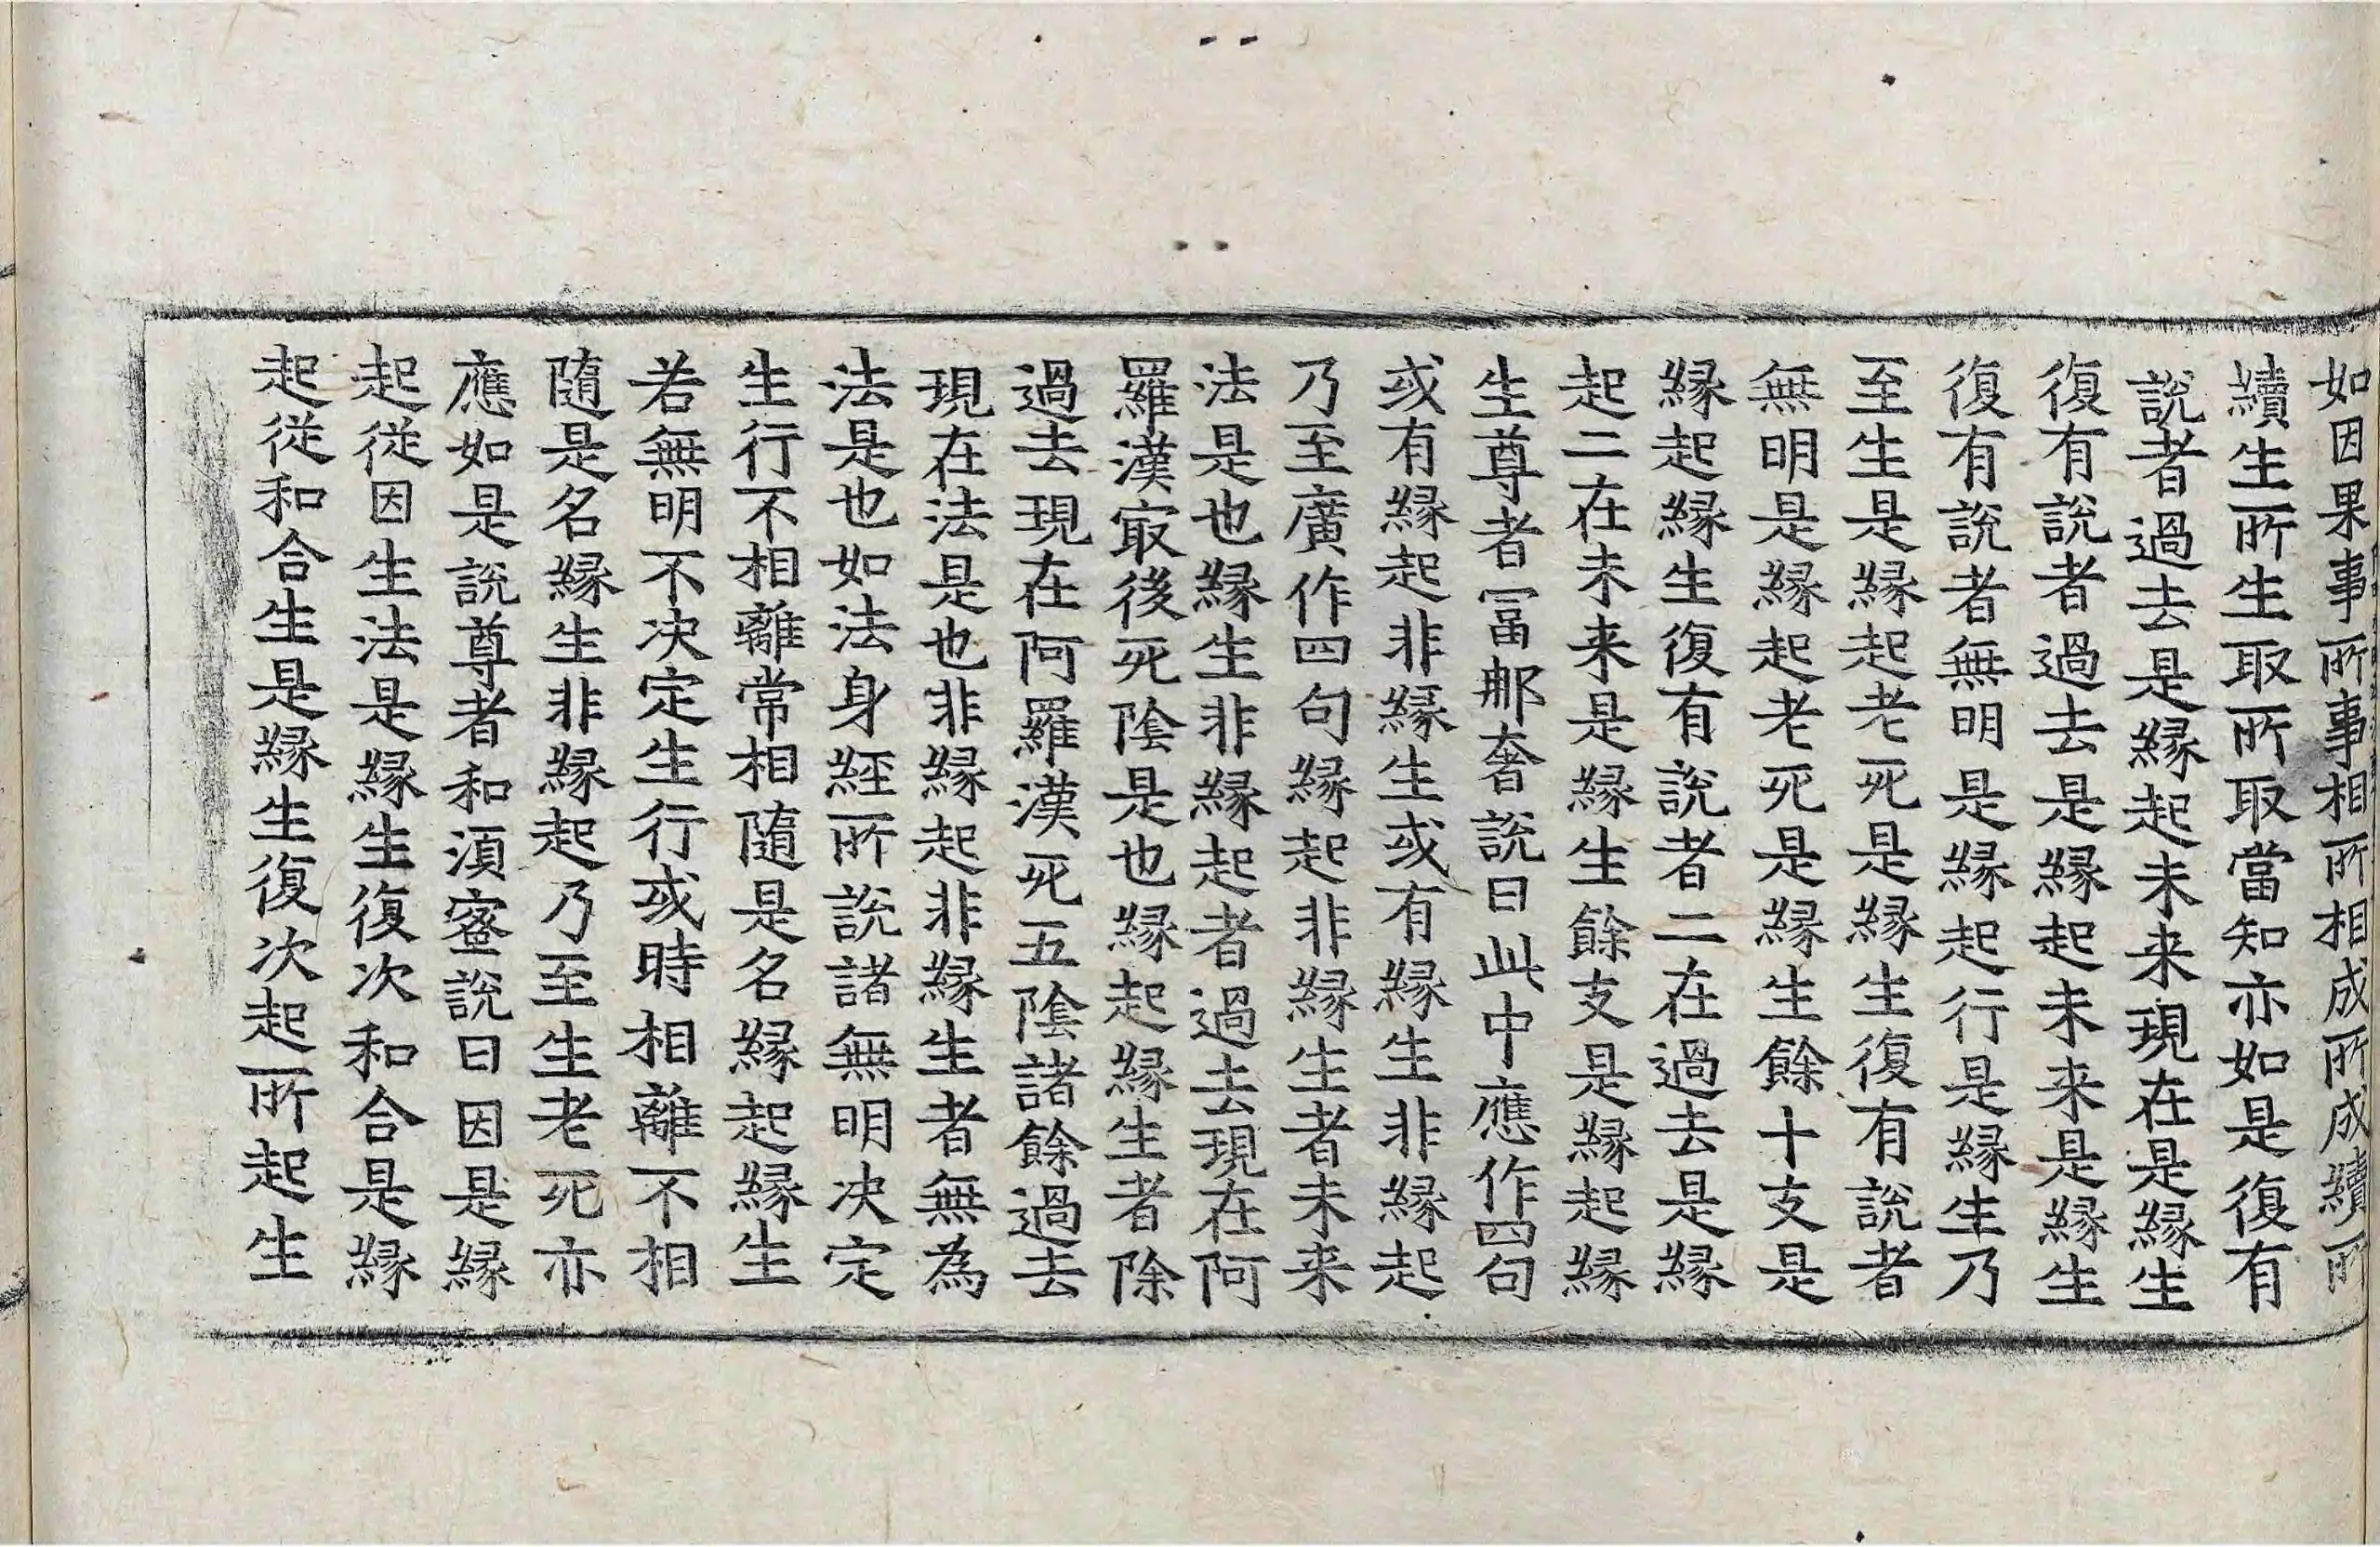 如因果事所事相所相成所成續所
續生所生取所取當知亦如是復有
說者過去是緣起未来現在是緣生
復有說者過去是緣起未来是緣生
復有說者無明是緣起行是緣生乃
至生是緣起老死是緣生復有說者
無明是緣起老死是緣生餘十支是
緣起緣生復有說者二在過去是緣
起二在未来是緣生餘支是緣起緣
生尊者冨那奢說曰此中應作四句
或有緣起非緣生或有緣生非緣起
乃至廣作四句緣起非緣生者未来
法是也緣生非緣起者過去現在阿
羅漢㝡後死陰是也緣起緣生者除
過去現在阿羅漢死五陰諸餘過去
現在法是也非緣起非緣生者無為
法是也如法身經所說諸無明决定
生行不相離常相隨是名緣起緣生
若無明不决定生行或時相離不相
隨是名緣生非緣起乃至生老死亦
應如是說尊者和須蜜說曰因是緣
起從因生法是緣生復次和合是緣
起從和合生是緣生復次起所起生